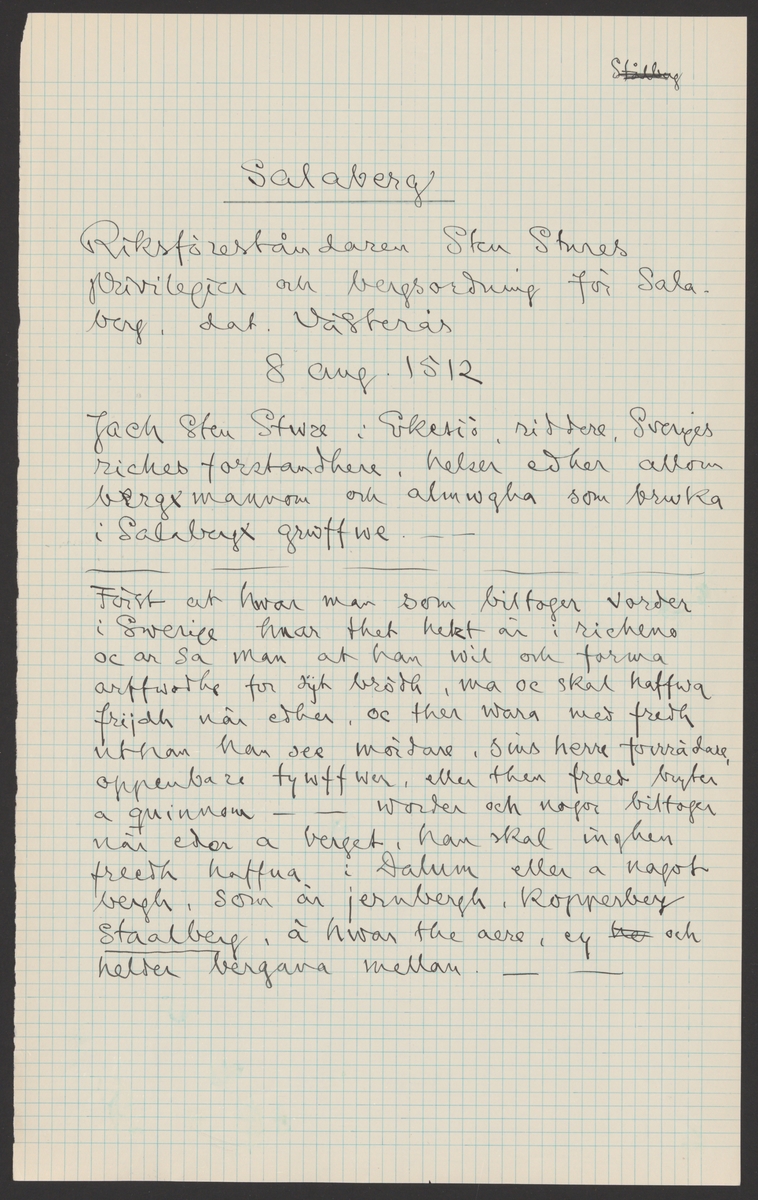 Salaberg
Riksföreståndaren Sten Stures
privilegier och bergsordning för Sala-
berg, dat. Västerås
8 aug. 1512
Jach Sten Stwre i Ekesiö, riddere, Sveriges
riches forstandhere, helser edher allom
bergxmannom och almwgha som brwka
i Salabergx grwffwe. — —
Först at hwar man som biltoger vorder
i Swerige hwar thet helst är i richeno
oc ar sa man at han wil och forma
arffwodhe for sijt brödh, ma oc skal haffwa
frijdh när edher, oc ther wara med fredh
uthan han see mördare, sins herre forrädare,
oppenbare tywffwer, eller then freed bryter
a quinnom — — worder och nogor biltoger
när eder a berget, han skal inghen
freedh haffua i Dalum eller a nagot
bergh, som är jernbergh, kopperberg
Staalberg, ä hwar the aere, ey och
helder bergana mellan. — —